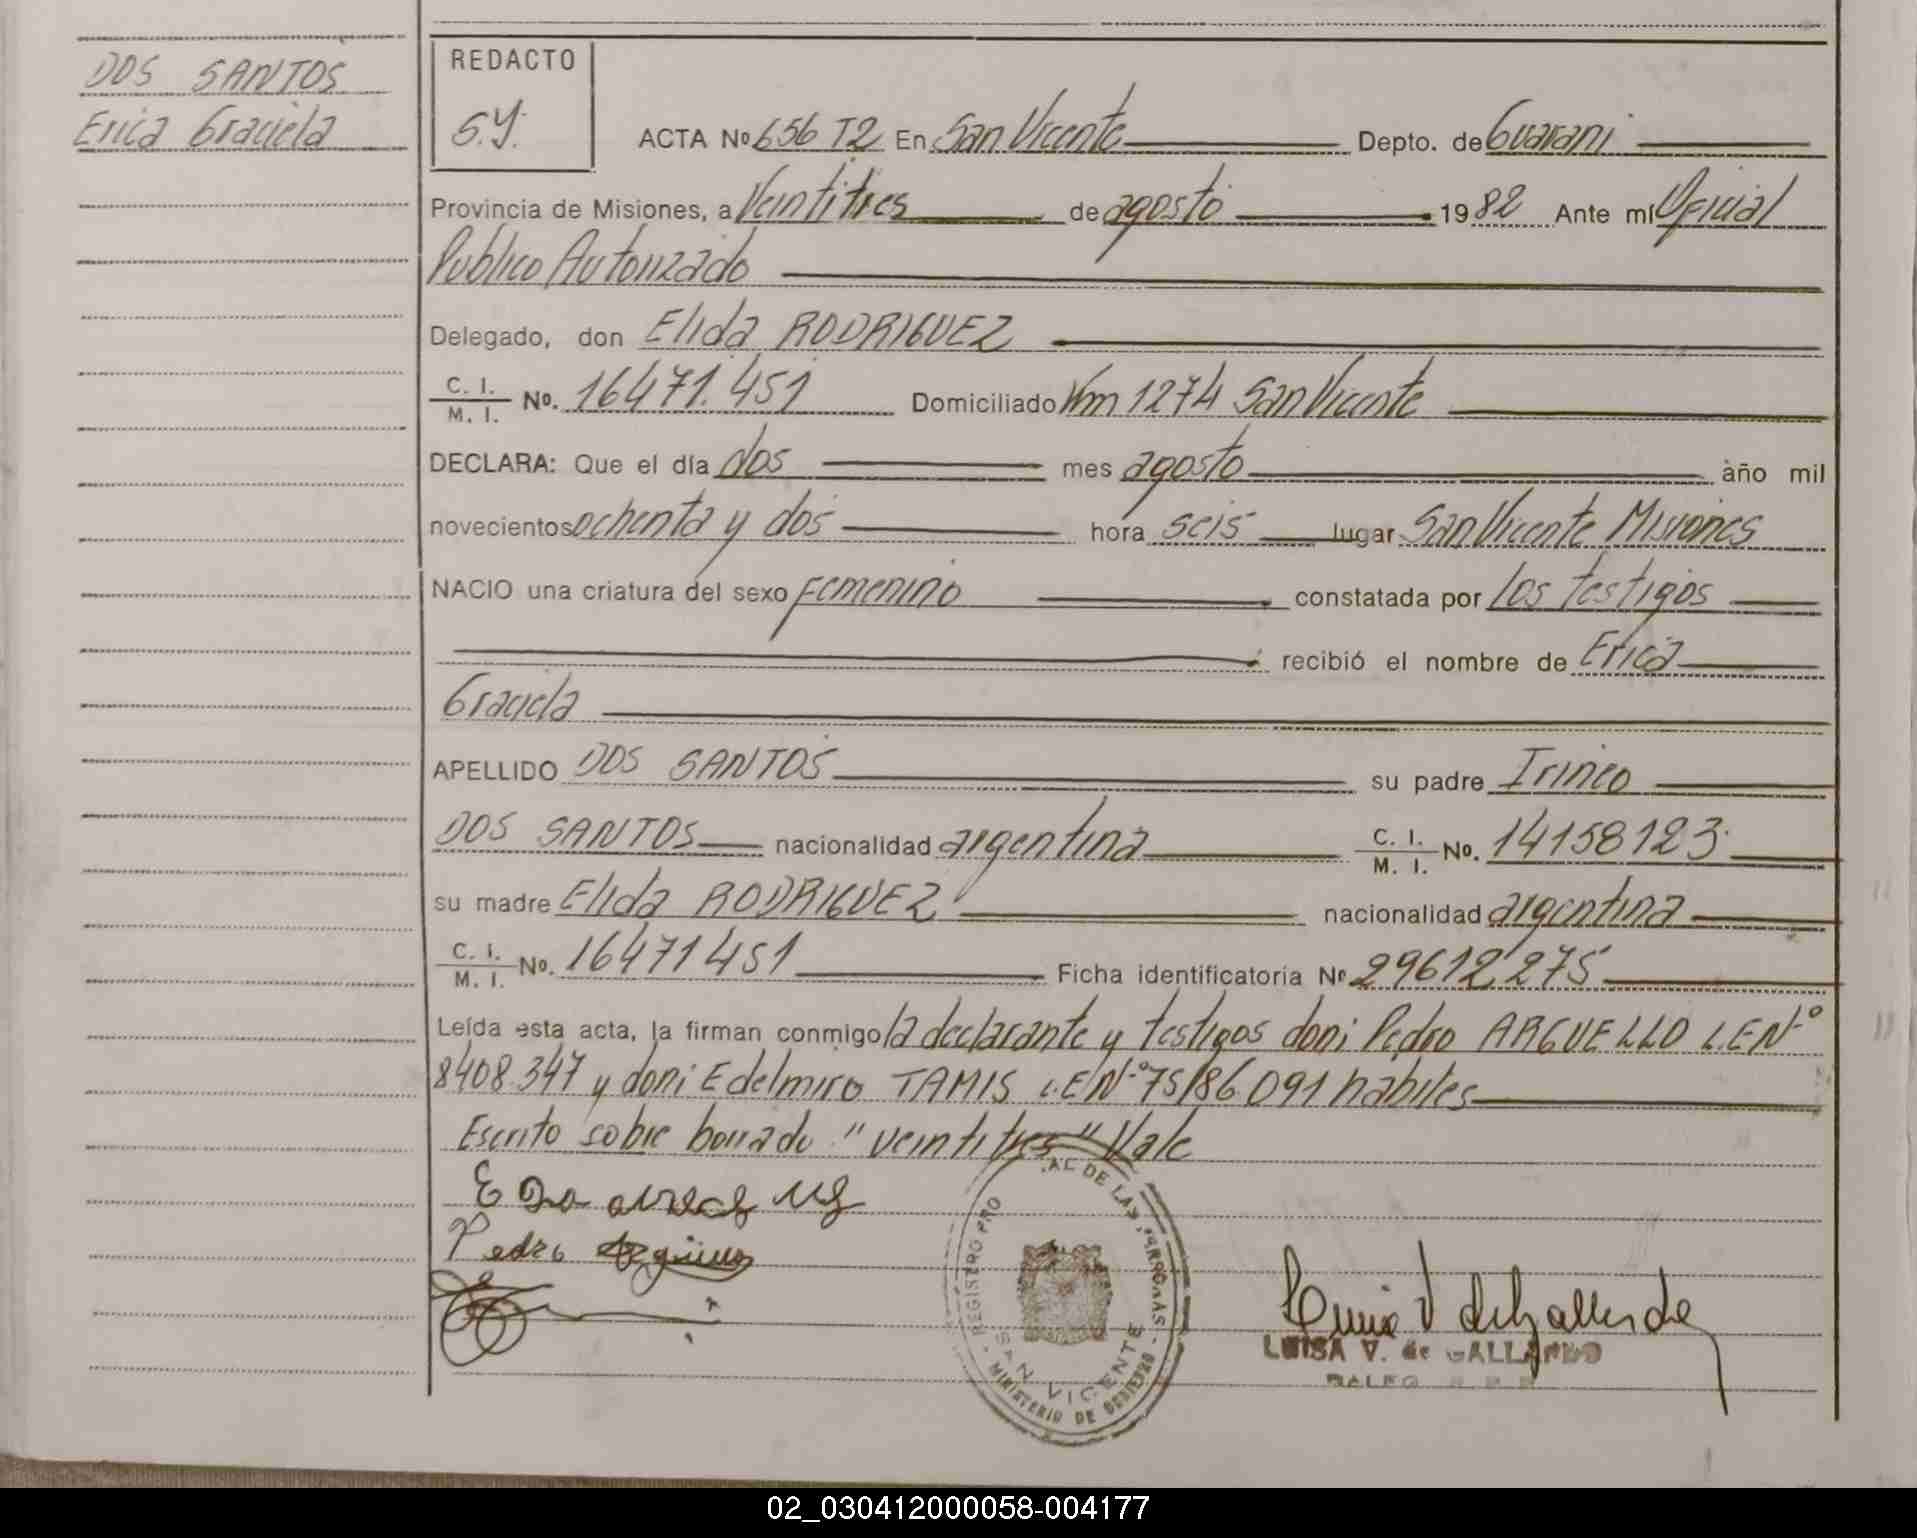 DOS SANTOS
Erica Graciela
REDACTO
S.Y.
ACTA Nº 656 T2 En San Vicente Depto. de Guarani
Provincia de Misiones, a Veintitres de agosto 1982 Ante mí Oficial
Publico Autorizado
Delegado, don Elida RODRIGUEZ
C. I. / M. I. Nº. 16471.451 Domiciliado Km 1274 San Vicente
DECLARA: Que el día dos mes agosto año mil
novecientos ochenta y dos hora seis lugar San Vicente Misiones
NACIO una criatura del sexo femenino constatada por los testigos
recibió el nombre de Erica
Graciela
APELLIDO DOS SANTOS su padre Irineo
DOS SANTOS nacionalidad argentina C. I. / M. I. Nº. 14158123
su madre Elida RODRIGUEZ nacionalidad argentina
C. I. / M. I. Nº. 16471451 Ficha identificatoria Nº 29612275
Leída esta acta, la firman conmigo la declarante y testigos don: Pedro ARGUELLO L.E Nº
8408.347 y don: Edelmiro TAMIS L.E Nº 7586.091 habiles
Escrito sobre borrado "veintitres" Vale
Pedro Argüello
REGISTRO PRO AL DE LAS PERSONAS
SAN VICENTE
MINISTERIO DE GOBIERNO
LUISA V. de GALLARDO
02_030412000058-004177